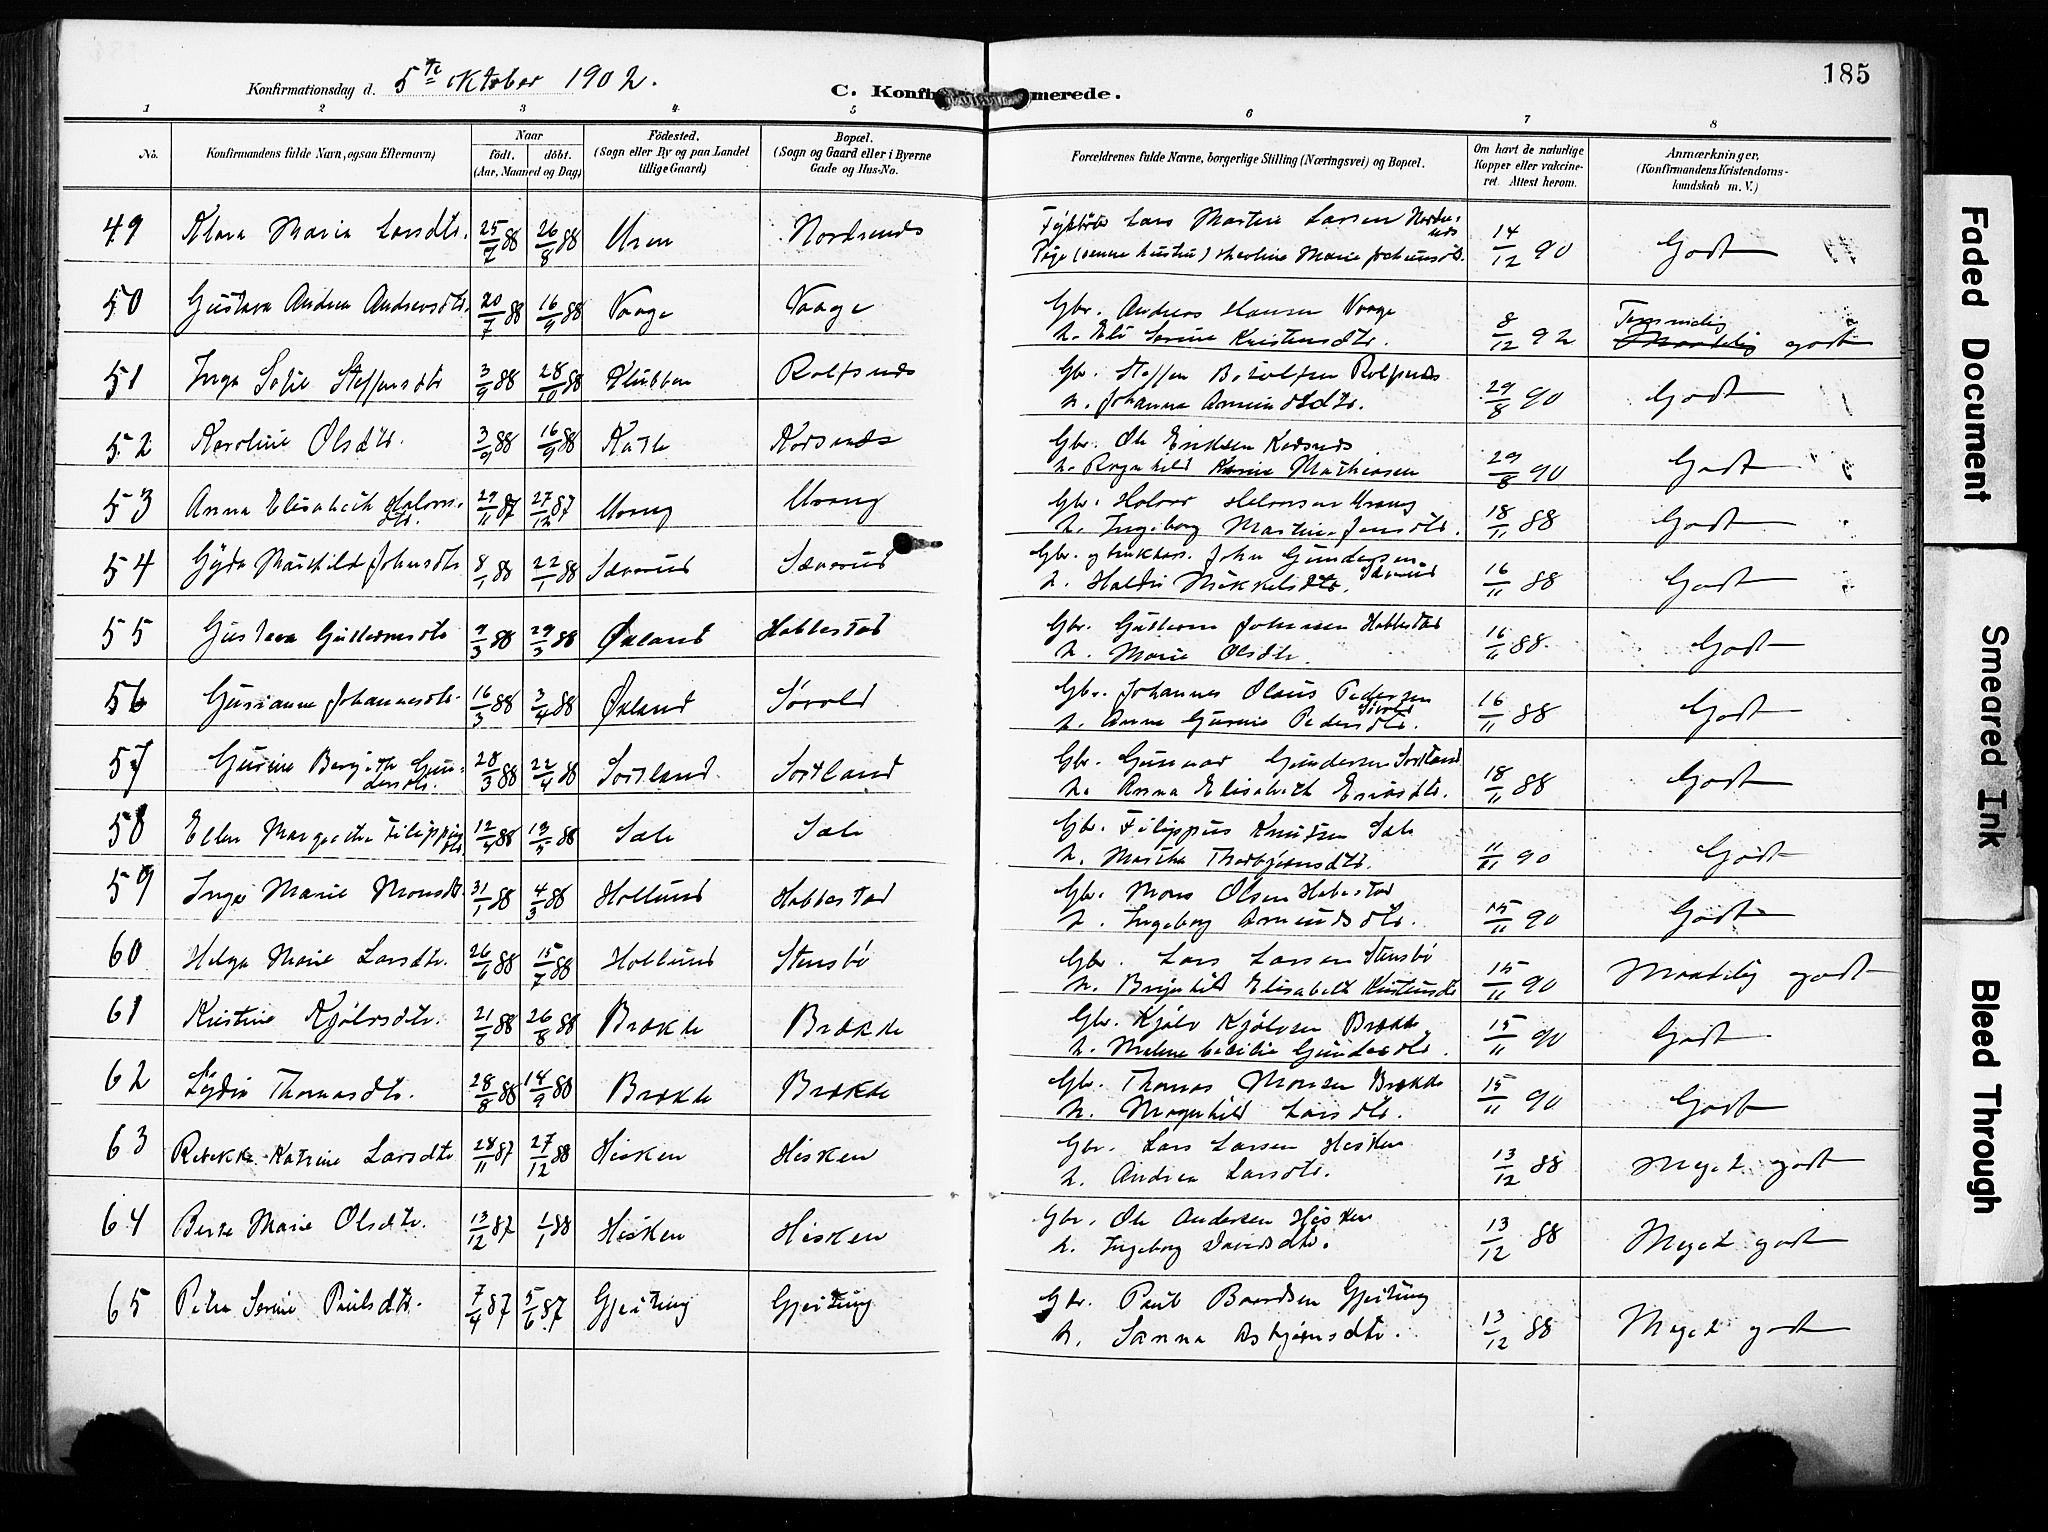 Konfirmationsdag d. 5te Oktober 1902.
C. Konfir merede.
185
1 2 3 4 5 6 7 8
No.
Konfirmandens fulde Navn, ogsaa Efternavn)
Naar
födt. döbt.
(Aar, Maaned og Dag)
Födested.
(Sogn eller By og paa Landet
tillige Gaard)
Bopæl.
(Sogn og Gaard eller i Byerne
Gade og Hus-No.
Forældrenes fulde Navne, borgerlige Stilling (Næringsvei) og Bopæl.
Om havt de naturlige
Kopper eller vakcine-
ret. Attest herom.
Anmærkninger,
(Konfirmandens Kristendoms-
kundskab m. V.)
49 Klara Maria Larsdtr. 25/7 88 26/8 88 Uren Nordsnæs Lars Martin Larsen
Pige (senere hustru) Marie 14/12 90 Godt
50 Gustava Andrea Andreasdtr. 20/7 88 16/9 88 Vaage Vaage Gbr. Andreas Hansen Vaage
h. Eli Serine Kristensdtr. 8/12 92 Temmelig godt
51 Inga Sofie Steffensdtr 3/9 88 28/10 88 Klubben Rolfsnæs Gbr. Steffen Rolfsnæs
h. Johanna Amundsdtr. 29/8 90 Godt
52 Karoline Olsdtr. 3/9 88 16/9 88 Korsnæs Gbr. Ole Eriksen
h. Ragnhild Karine Mathiasen 29/8 90 Godt
53 Anna Elisabeth Halvors-
dtr. 29/11 87 27/12 87 Urang Urang Gbr. Halvor Halvorsen Urang
h. Ingeborg Martine Jensdtr. 18/11 88 Godt
54 Gyda Mathilde Johnsdtr 8/1 88 22/1 88 Sæverud Sæverud Gbr. og John Gundersen
Sæverud
h. Haldis Mikkelsdtr. 16/11 88 Godt
55 Gustava Guttormsdtr 9/3 88 29/3 88 Økland Habbestad Gbr. Guttorm Johnsen Habbestad
h. Marie Olsdtr. 16/11 88. Godt
56 Gurianne Johannesdtr. 16/3 88 3/4 88 Økland Sørvold Gbr. Johannes Olaus Pedersen
h. Anne Gurine Pedersdtr. 16/11 88 Godt
57 Gurine Bergithe Gun-
dersdtr. 28/3 88 22/4 88 Sortland. Sortland Gbr. Gunnar Gundersen Sortland
h. Anna Elisabeth Eriksdtr. 18/11 88 Godt
58 Ellen Margrethe Filippus
dtr. 12/4 88 13/5 88 Sæle Sæle Gbr. Filippus Knutsen Sæle
h. Martha Thorbjørnsdtr. 11/11 90 Godt
59 Inga Marie Monsdtr. 31/1 88 4/3 88 Hollund Habbestad Gbr. Mons Olsen Habestad
h. Ingeborg Amundsdtr. 15/11 90 Godt
60 Helga Marie Larsdtr. 26/6 88 15/7 88 Hollund Stensbø Gbr. Lars Larsen Stensbø
h. Brynhild Elisabeth Kristensdtr 15/11 90 Maadelig godt
61 Kristine Kjølvsdtr. 21/7 88 26/8 88 Brække Brække Gbr. Kjølv Kjølvsen Brække
h. Malene Cecilie Gundersdtr. 15/11 90 Godt
62 Lydia Thomasdtr. 28/8 88 14/9 88 Brække Brække Gbr. Thomas Monsen Brække
h. Magnhild Larsdtr. 15/11 90 Godt
63 Rebekka Katrine Larsdtr 28/11 87 27/12 88 Hisken Hisken Gbr. Lars Larsen Hisken
h. Andrea Larsdtr. 13/12 88 Meget godt
64 Berta Marie Olsdtr. 13/12 87 1/1 88 Hisken Hisken Gbr. Ole Andersen Hisken
h. Ingeborg Davidsdtr. 13/12 88 Meget godt
65 Petra Serine Paulsdtr. 7/4 87 5/6 87 Gjeitung Gjeitung Gbr. Paul Baardsen Gjeitung
h. Sanna Asbjørnsdtr. 13/12 88 Meget godt
Faded Document
Smeared Ink
Bleed Through